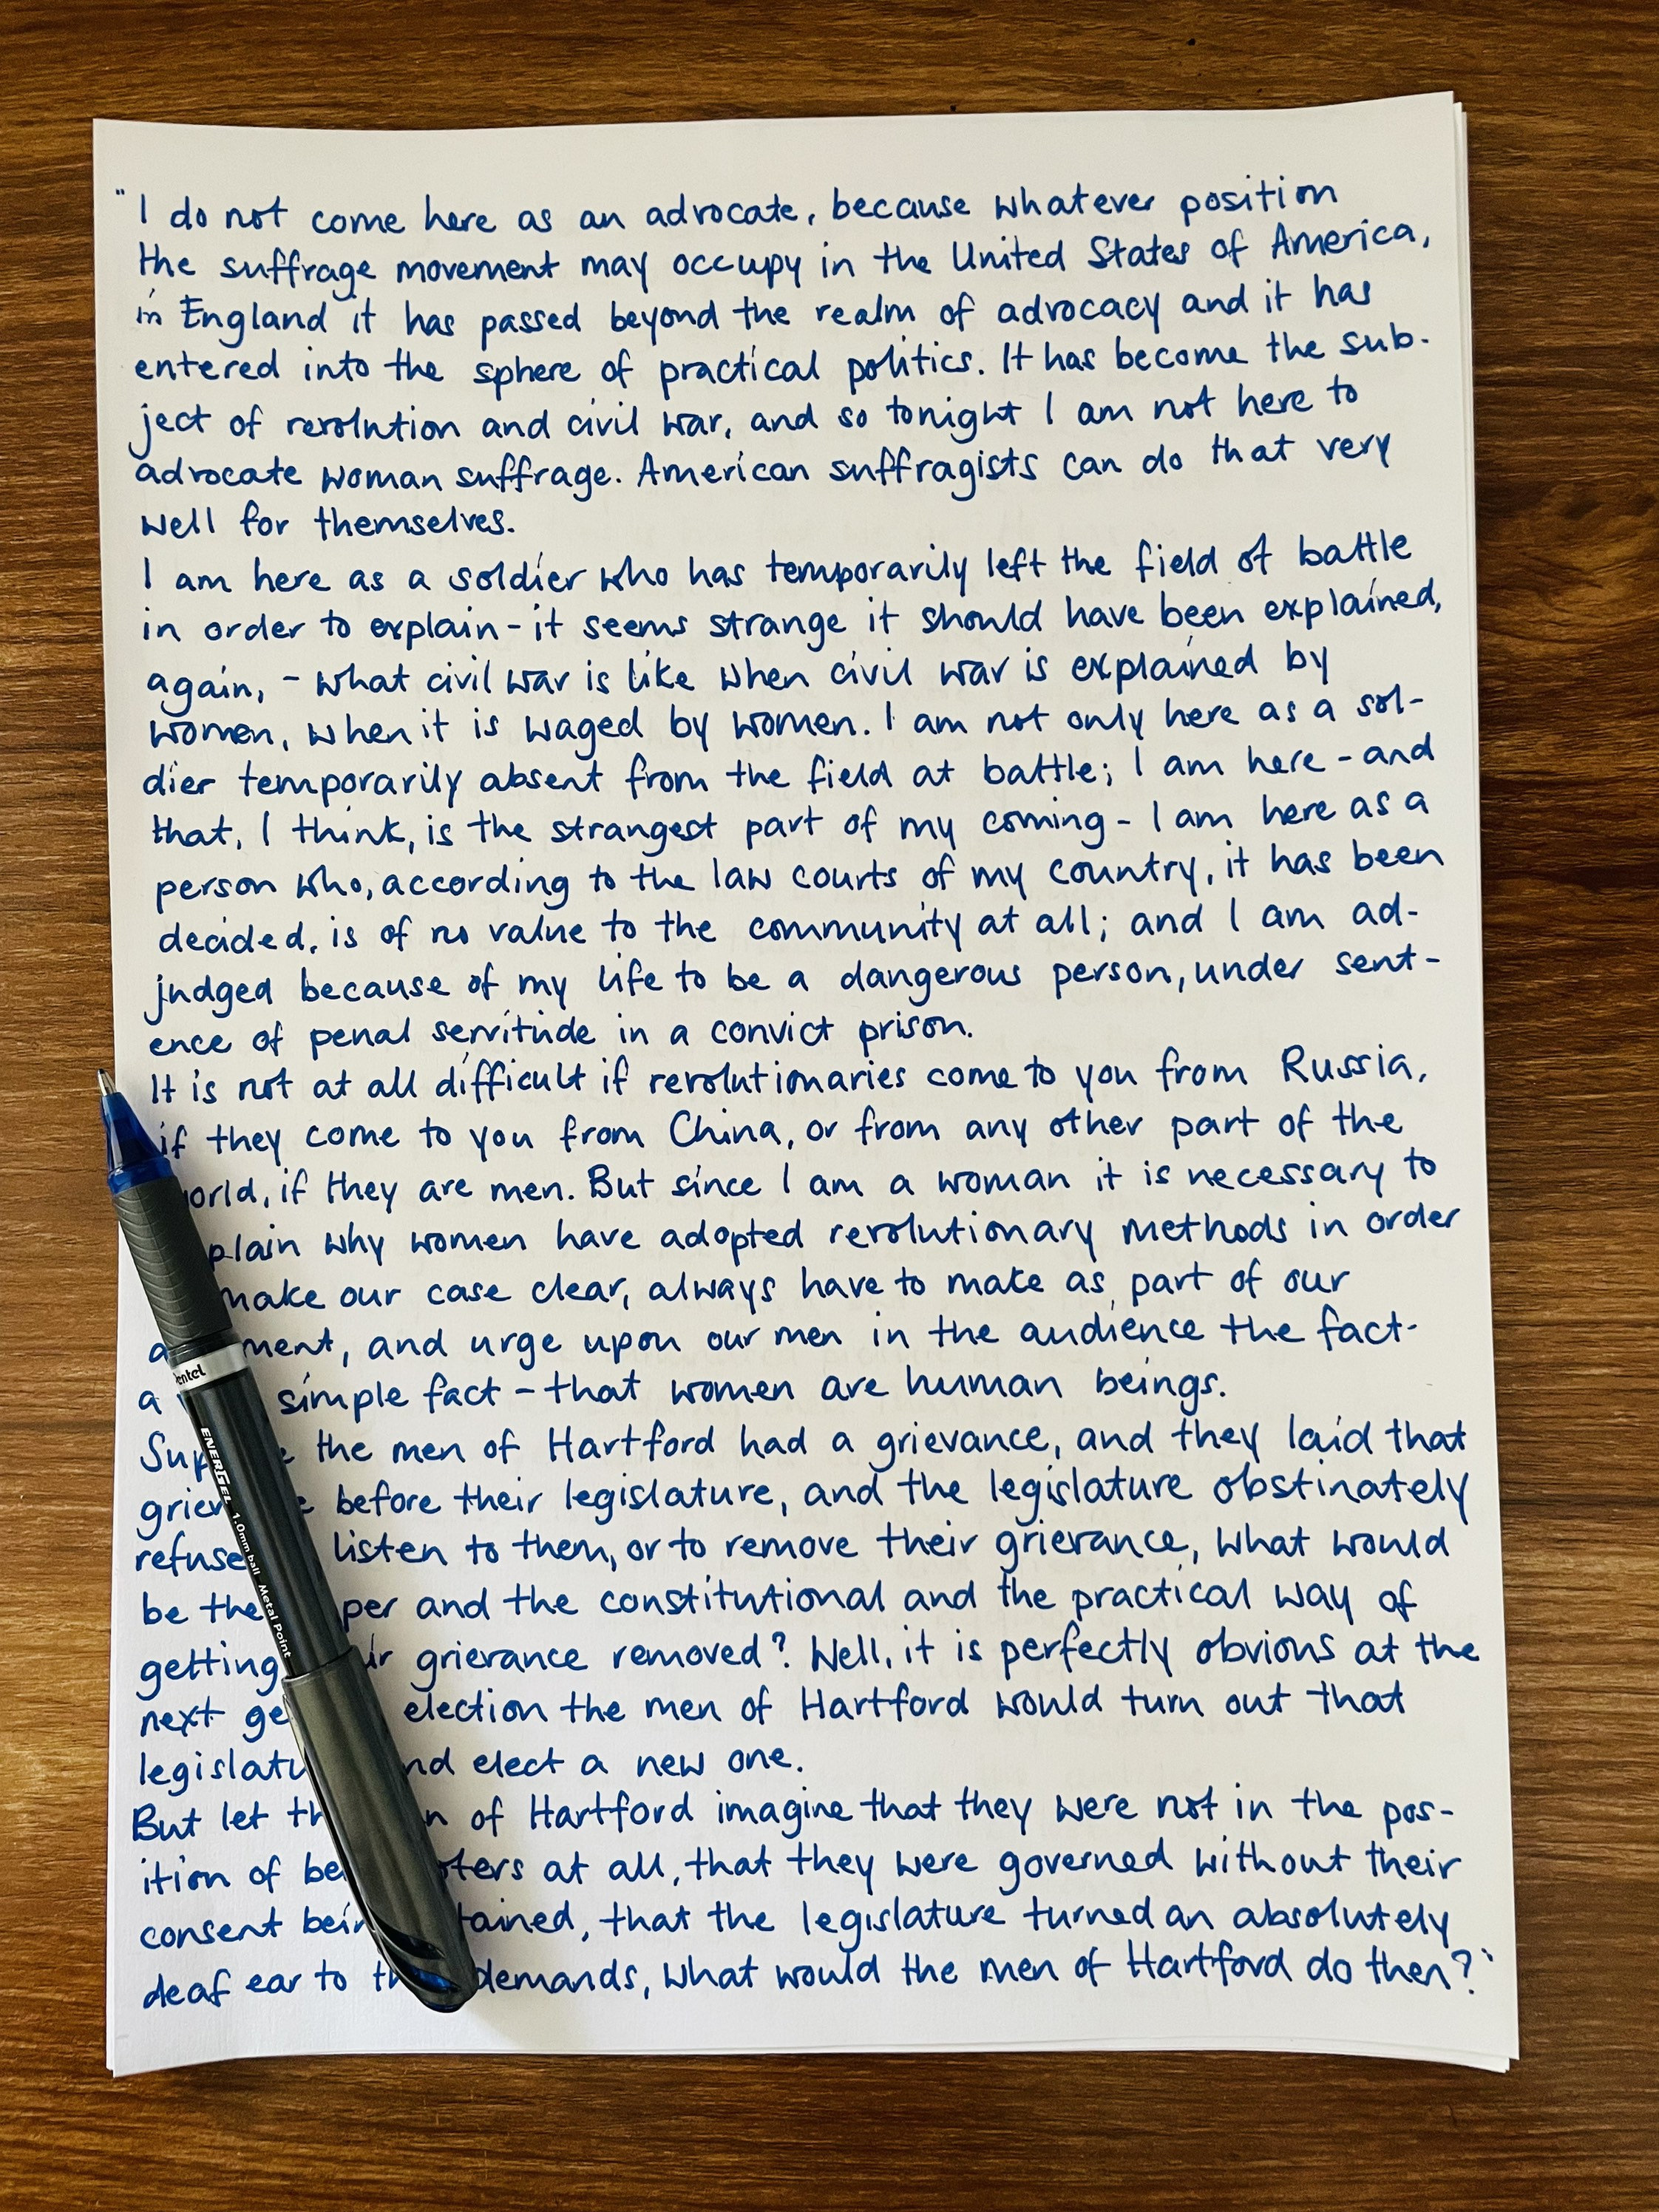 "I do not come here as an advocate, because whatever position
the suffrage movement may occupy in the United States of America,
in England it has passed beyond the realm of advocacy and it has
entered into the sphere of practical politics. It has become the sub-
ject of revolution and civil war, and so tonight I am not here to
advocate woman suffrage. American suffragists can do that very
well for themselves.
I am here as a soldier who has temporarily left the field of battle
in order to explain - it seems strange it should have been explained,
again, - what civil war is like when civil war is explained by
women, when it is waged by women. I am not only here as a sol-
dier temporarily absent from the field at battle; I am here - and
that, I think, is the strangest part of my coming - I am here as a
person who, according to the law courts of my country, it has been
decided, is of no value to the community at all; and I am ad-
judged because of my life to be a dangerous person, under sent-
ence of penal servitude in a convict prison.
It is not at all difficult if revolutionaries come to you from Russia,
if they come to you from China, or from any other part of the
if they are men. But since I am a woman it is necessary to
why women have adopted revolutionary methods in order
make our case clear, always have to make as part of our
and urge upon our men in the audience the fact-
a simple fact - that women are human beings.
the men of Hartford had a grievance, and they laid that
before their legislature, and the legislature obstinately
listen to them, or to remove their grievance, what would
be the and the constitutional and the practical way of
getting grievance removed? Well, it is perfectly obvious at the
next election the men of Hartford would turn out that
elect a new one.
But let of Hartford imagine that they were not in the pos-
ition of at all, that they were governed without their
consent that the legislature turned an absolutely
deaf ear to demands, what would the men of Hartford do then?"
Pentel
ENERGEL 1.0mm ball Metal Point